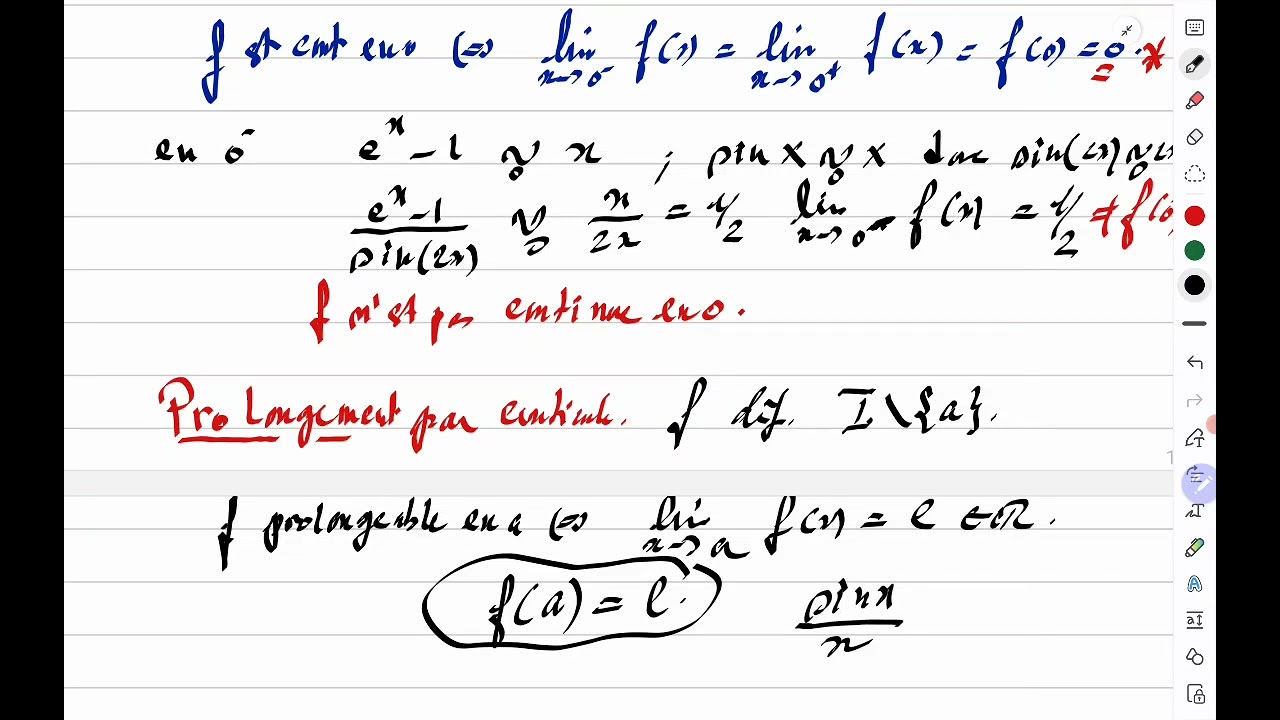 f est cont en 0 ⇔ lim x→0⁻ f(x) = lim x→0⁺ f(x) = f(0) = 0. *
en 0⁻ eˣ-1 ~₀ x ; sin X ~₀ X donc sin(2x) ~₀ 2x
(eˣ-1)/(sin(2x)) ~₀ x/2x = 1/2 lim x→0⁻ f(x) = 1/2 ≠ f(0
f n'est pas continue en 0.
Prolongement par continuité. f déf. I\{a}.
f prolongeable en a ⇔ lim x→a f(x) = l ∈ ℝ.
f(a) = l. sin x / x